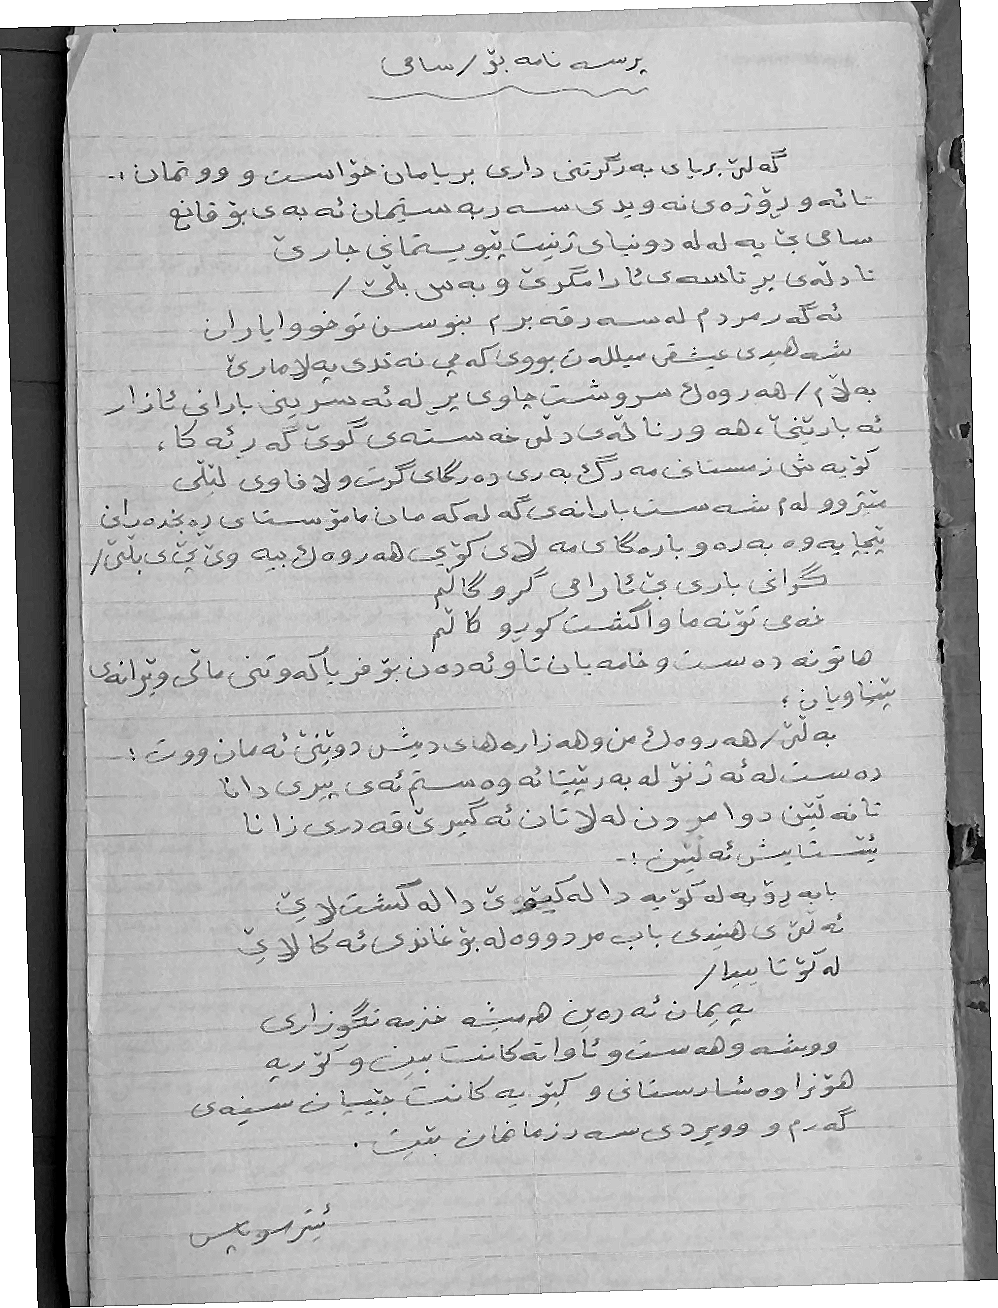 پرسە نامە بۆ/سامی
گەلێ بریای بەرگرتنی داری بریامان خۆاست و ووتمان :-
تا ئە و ڕۆژەی نە ویدی سەربە ستیمان ئە بەی بۆ قانع
سامی بێ پە لە لە دونیای ژنیت پێویستمانی جارێ
تا دڵەی پڕ تاسەی ئارامگرێ و بەس بڵێ /
ئەگەر مردم لەسەر قەبرم بنوسن توخووایاران
شەهیدی عیشقی میللەت بووی کەچی نەتدی پەلامارێ
بەڵام/ هەروەك سروشت چاوی پڕ لەئەسرینی بارانی ئازار
ئە بارێنێ، هەورناڵەی دڵی خەستەی گوێ گەڕ ئەکا،
کۆیەش زمستانی مەرگ بەری دەرگای گرت و لافاوی لێڵی
مێژوو لەم شەست بارانەی گەلەکە مان مامۆستای ڕەنجدەرانی
پێچایەوە بەرەو بارەگای مە لای کۆیی هەروەك بیە وێ پێی بڵێ/
گرانی باری بێ ئارامی کرو گاڵم
خەمی تۆنە ما واگشت کوڕو کاڵم
هاتونە دەست و خامەیان تاوئەدەن بۆ فریاکەوتنی ماڵی وێرانەی
پێناویان ؛
بەڵێ/ هەروەك من و هەزارەهای دیش دوێنێ ئەمان ووت :-
دەست لەئە ژنۆ لە بەر پێیتائە وەستم ئەی پیری دانا
تا نەڵێن دوا مردن لەلاتان ئەگیرێ قەدری زانا
ئێستایش ئەڵێن :-
بابەڕۆیە لەکۆیە دا لەکێوێ دا لە گشت لایێ
ئەڵێی هیندی باب مردووە لە بۆ غاندی ئەکا لایێ
لە کۆتاییدا/
پەیمان ئەدەین هەمیشە خزمەتگوزاری
ووشە وهەست و ئاواتەکانت بین و کۆڕیە
هۆنراوە شارستانی و کێویەکانت جێیان سینەی
گەرم و وویردی سەر زمانمان بێت.
ئیتر سوپاس